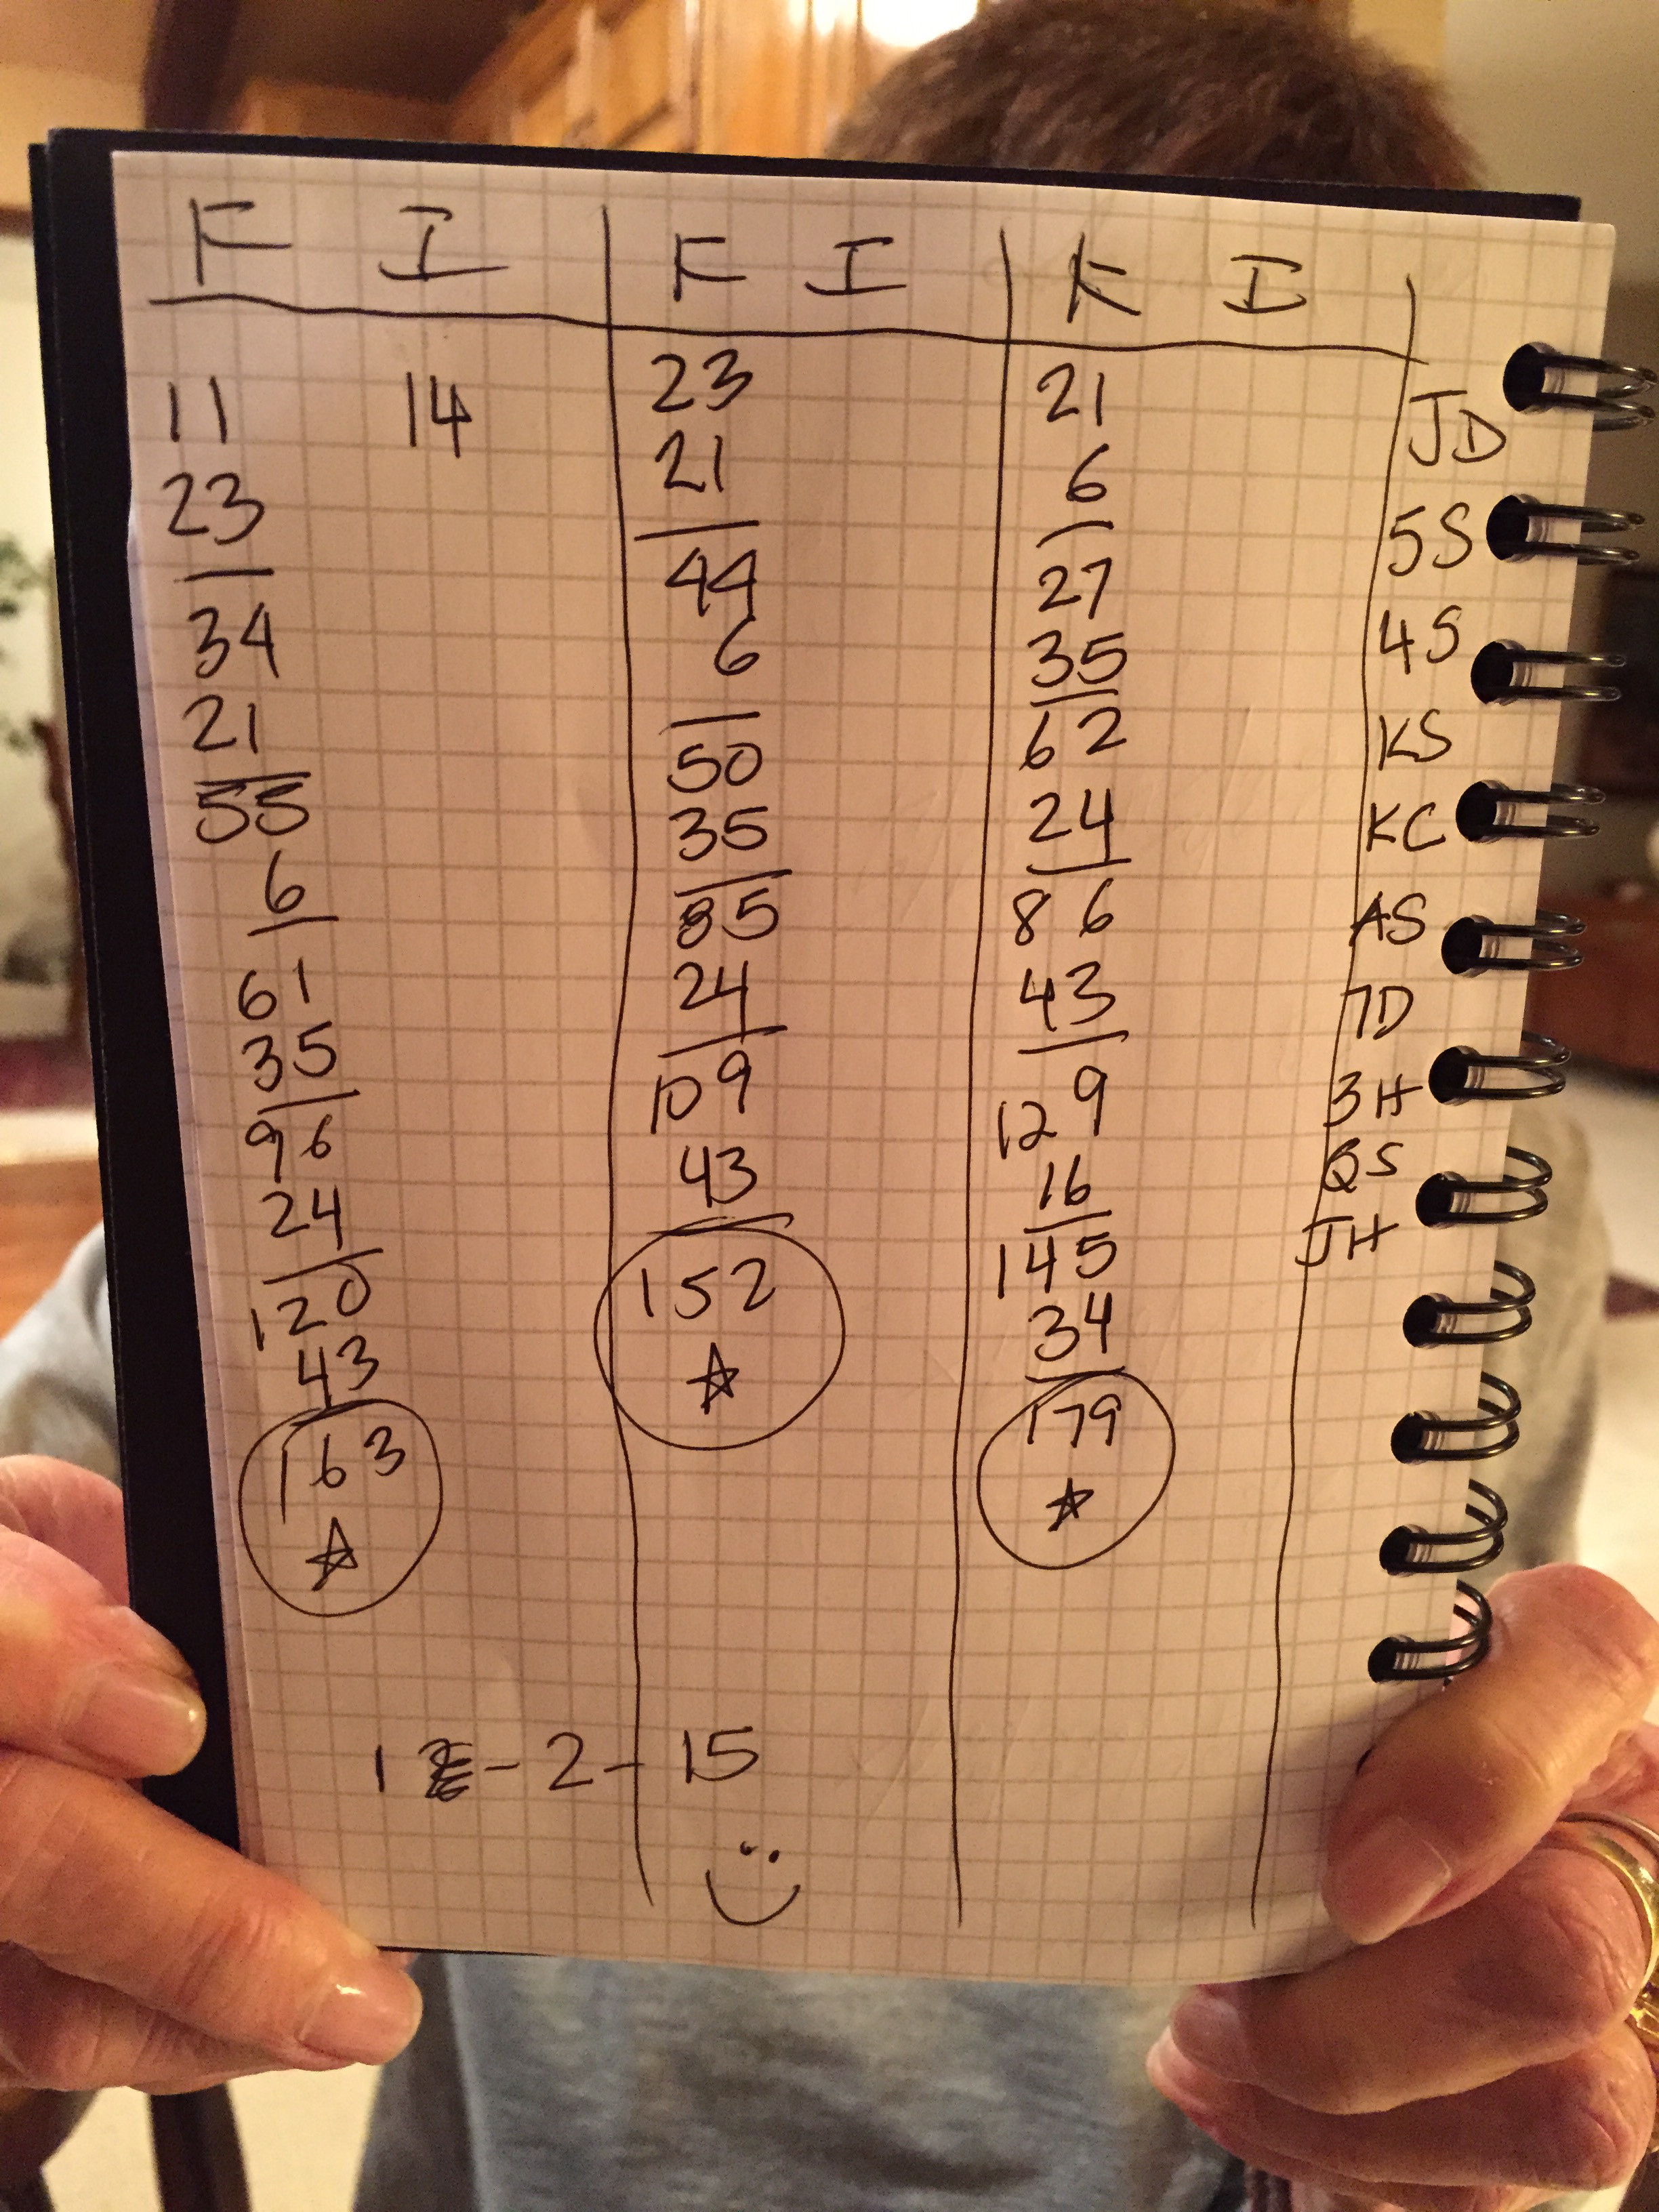 F I
11 14
23
34
21
55
6
61
35
96
24
120
43
163
F I
23
21
44
6
50
35
85
24
109
43
152
F I
21
6
27
35
62
24
86
43
129
16
145
34
179
JD
5S
4S
KS
KC
AS
7D
3H
QS
JH
1 - 2 - 15